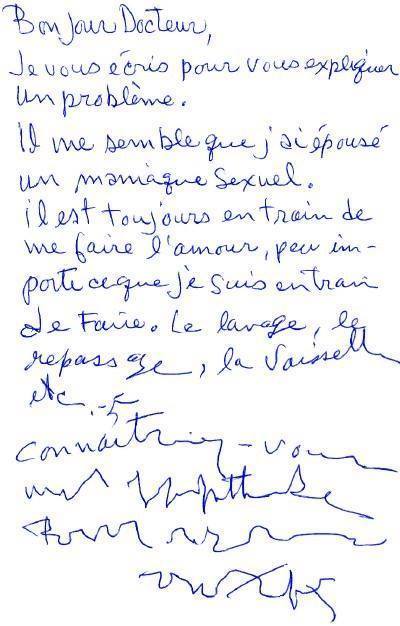 Bonjour Docteur,
Je vous écris pour vous expliquer
un problème.
Il me semble que j'ai épousé
un maniaque sexuel.
il est toujours en train de
me faire l'amour, peu im-
porte ce que je suis en train
de faire. Le lavage, le
repassage, la vaisselle
etc.
connaîtriez-vous